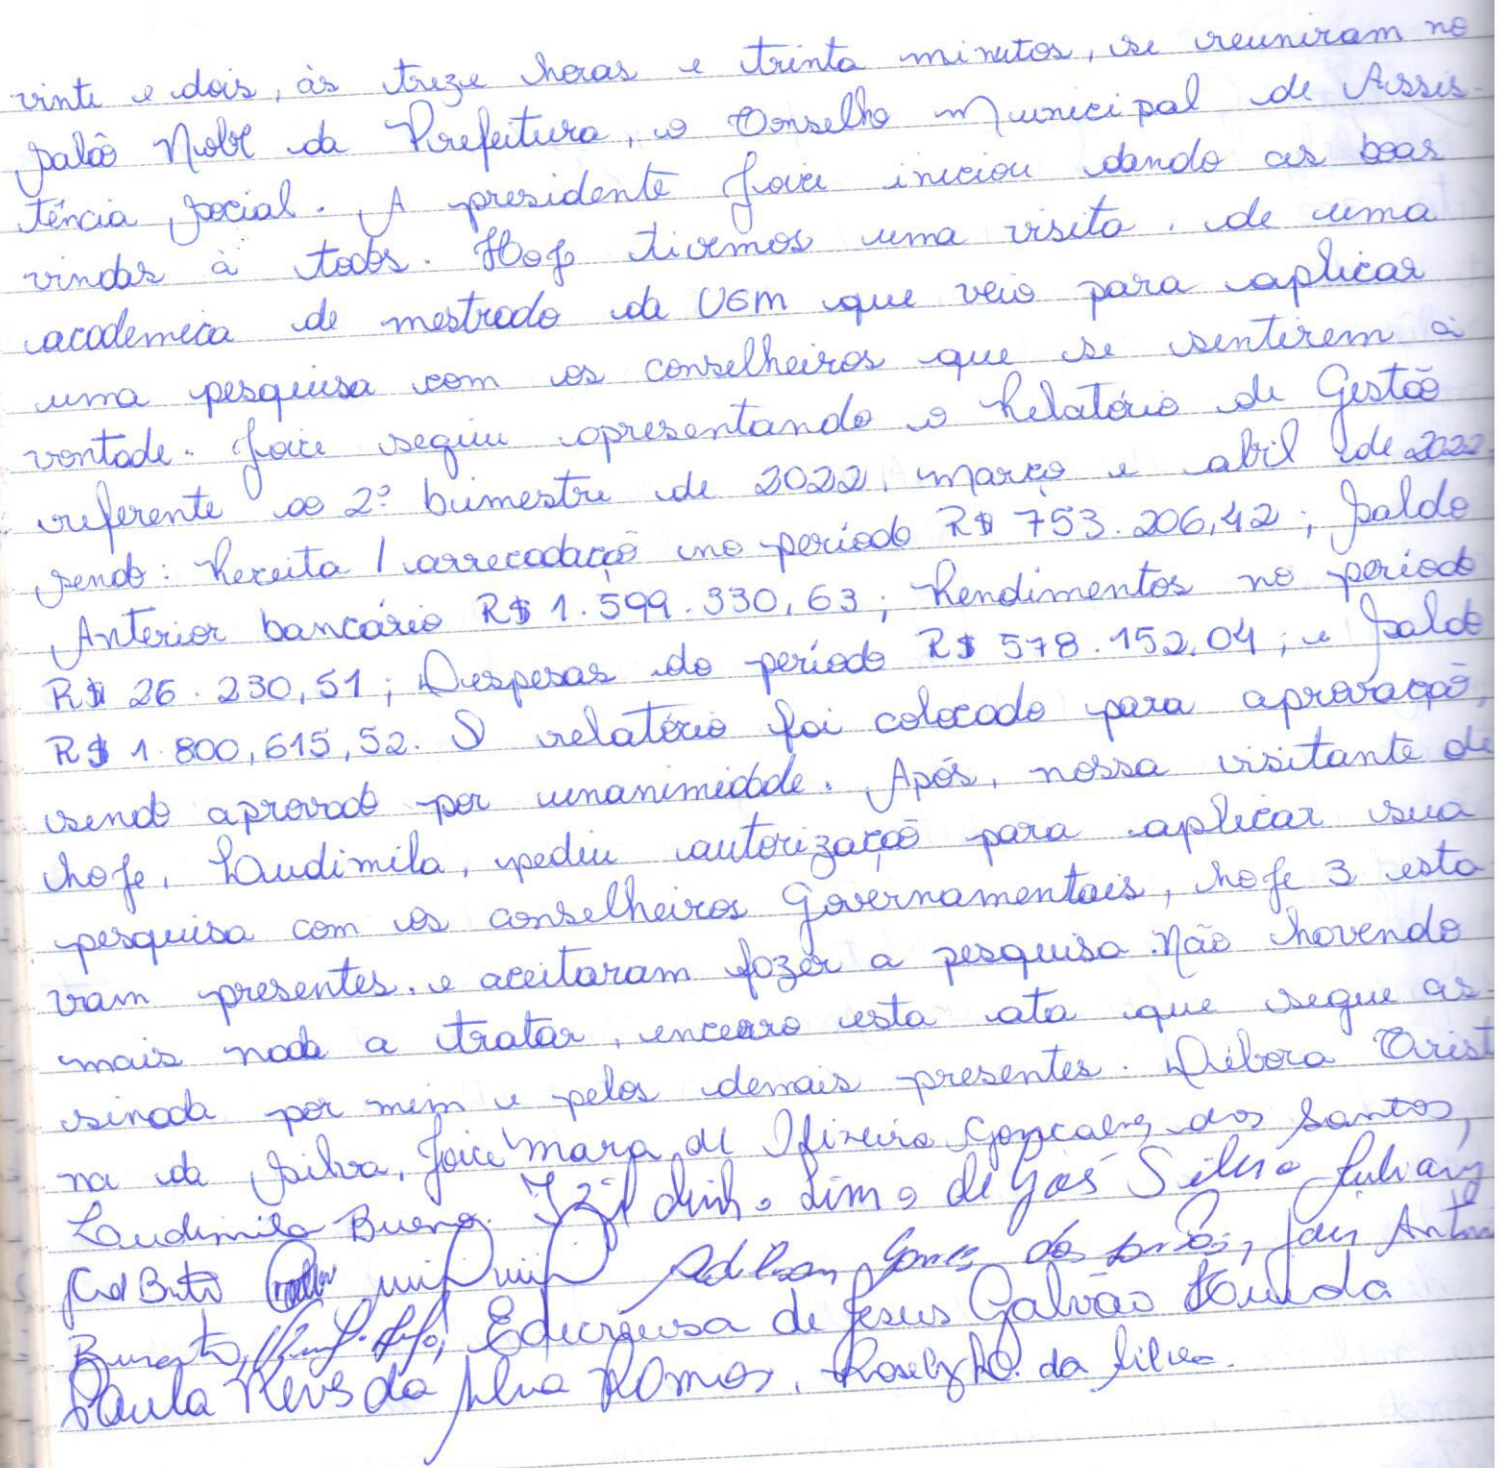 vinte e dois, às treze horas e trinta minutos, se reuniram no
Salão Nobre da Prefeitura, o Conselho Municipal de Assis-
tência Social. A presidente Joice iniciou dando as boas
vindas à todos. Hoje tivemos uma visita, de uma
academica de mestrado da UEM que veio para aplicar
uma pesquisa com os conselheiros que se sentirem a
vontade. Joice seguiu apresentando o Relatório de Gestão
referente ao 2º bimestre de 2022, março e abril de 2022,
sendo: Receita / arrecadação no período R$ 753.206,42; Saldo
Anterior bancário R$ 1.599.330,63; Rendimentos no período
R$ 26.230,51; Despesas do período R$ 578.152,04; e Saldo
R$ 1.800,615,52. O relatório foi colocado para aprovação,
sendo aprovado por unanimidade. Após, nossa visitante de
hoje, Laudimila, pediu autorização para aplicar sua
pesquisa com os conselheiros Governamentais, hoje 3 esta
vam presentes, e aceitaram fazer a pesquisa. Não havendo
mais nada a tratar, encerro esta ata que segue as-
sinada por mim e pelos demais presentes. Débora Crist
na da Silva, Joice Mara de Oliveira Gonçalves dos Santos,
Laudimila Bueno. Lima de Góes Silva
Adilson Gomes dos
de Jesus Galvão
Paula Neves da Silva Ramos, Rosely da Silva.